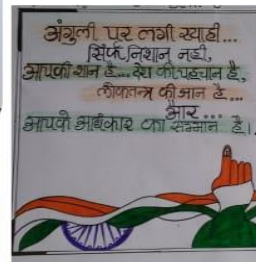 अंगुली पर लगी स्याही...
सिर्फ निशान नहीं,
आपकी शान है... देश की पहचान है,
लोकतन्त्र की जान है...
और...
आपके अधिकार का सम्मान है।